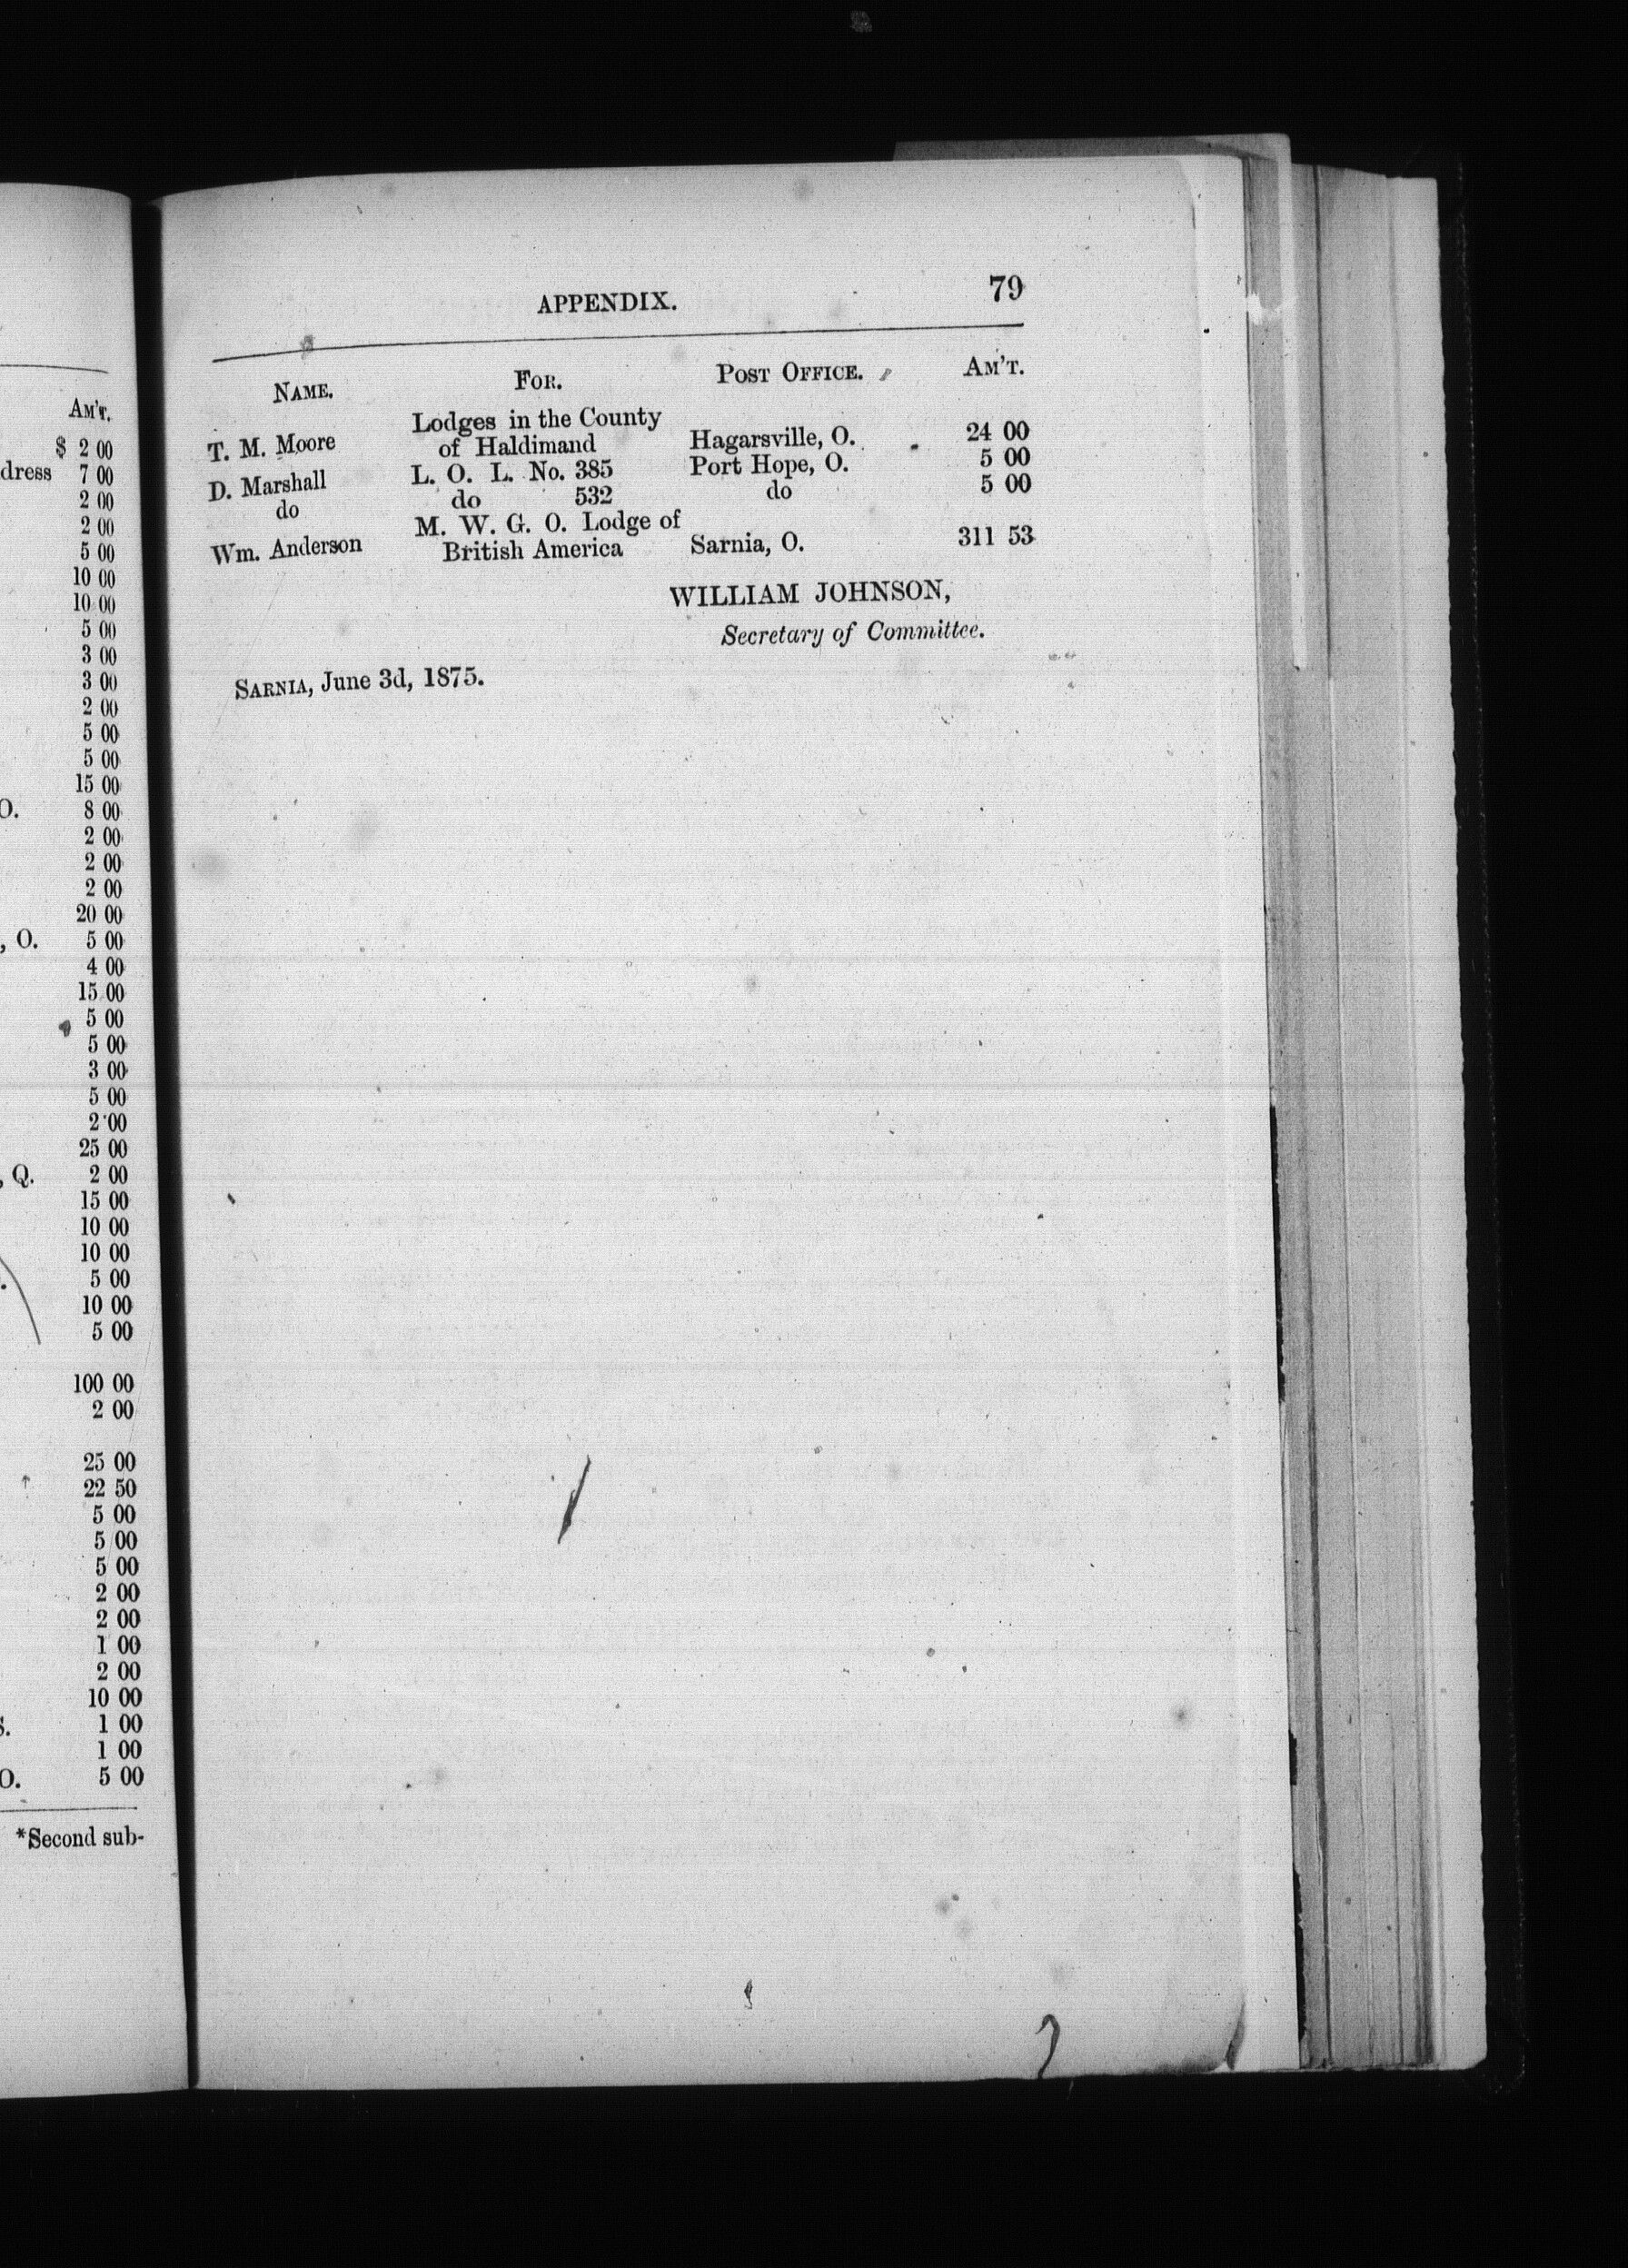 Am't.
$ 2 00
dress 7 00
2 00
2 00
5 00
10 00
10 00
5 00
3 00
3 00
2 00
5 00
5 00
15 00
O. 8 00
2 00
2 00
2 00
20 00
, O. 5 00
4 00
15 00
5 00
5 00
3 00
5 00
2 00
25 00
, Q. 2 00
15 00
10 00
10 00
5 00
10 00
5 00
100 00
2 00
25 00
22 50
5 00
5 00
5 00
2 00
2 00
1 00
2 00
10 00
S. 1 00
1 00
O. 5 00
*Second sub-
APPENDIX. 79
Name. For. Post Office. Am't.
Lodges in the County
T. M. Moore of Haldimand Hagarsville, O. 24 00
D. Marshall L. O. L. No. 385 Port Hope, O. 5 00
do do 532 do 5 00
M. W. G. O. Lodge of
Wm. Anderson British America Sarnia, O. 311 53
WILLIAM JOHNSON,
Secretary of Committee.
Sarnia, June 3d, 1875.